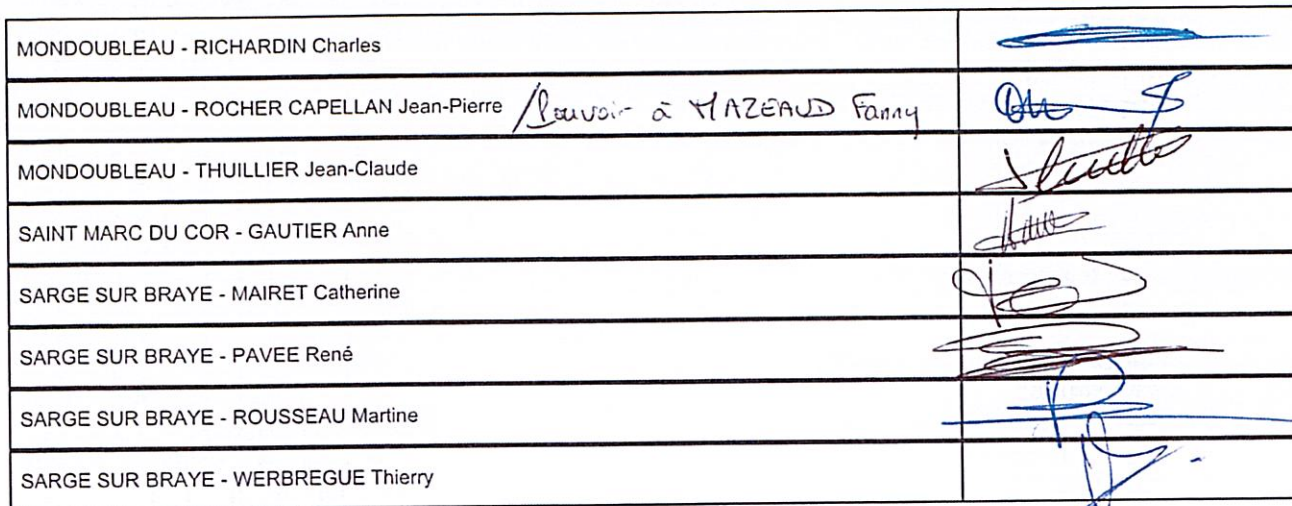 MONDOUBLEAU - RICHARDIN Charles
MONDOUBLEAU - ROCHER CAPELLAN Jean-Pierre /Pouvoir à MAZEAUD Fanny
MONDOUBLEAU - THUILLIER Jean-Claude
SAINT MARC DU COR - GAUTIER Anne
SARGE SUR BRAYE - MAIRET Catherine
SARGE SUR BRAYE - PAVEE René
SARGE SUR BRAYE - ROUSSEAU Martine
SARGE SUR BRAYE - WERBREGUE Thierry